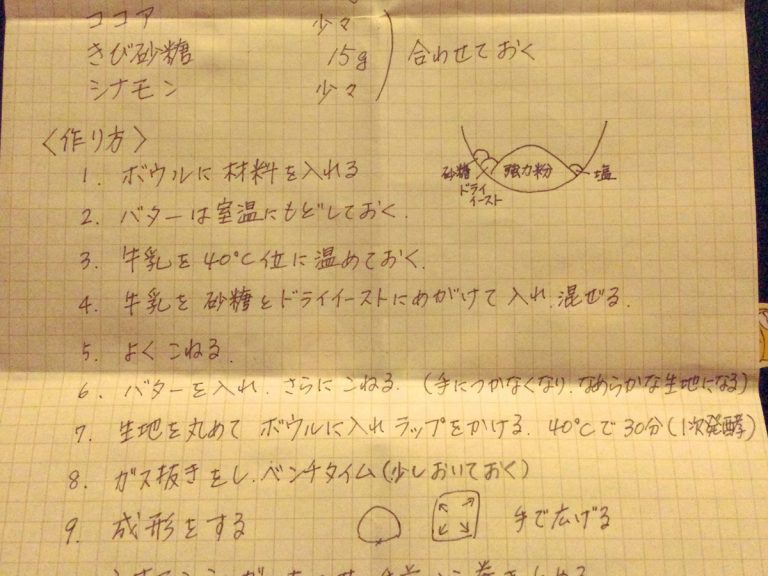 ココア 少々
きび砂糖 15g 合わせておく
シナモン 少々
〈作り方〉
1. ボウルに材料を入れる
砂糖 強力粉 塩
ドライ
イースト
2. バターは室温にもどしておく.
3. 牛乳を40℃位に温めておく.
4. 牛乳を砂糖とドライイーストにめがけて入れ.混ぜる.
5. よくこねる.
6. バターを入れ.さらにこねる.(手につかなくなり.なめらかな生地になる)
7. 生地を丸めてボウルに入れラップをかける.40℃で30分(1次発酵)
8. ガス抜きをし.ベンチタイム(少しおいておく)
9. 成形をする 手で広げる